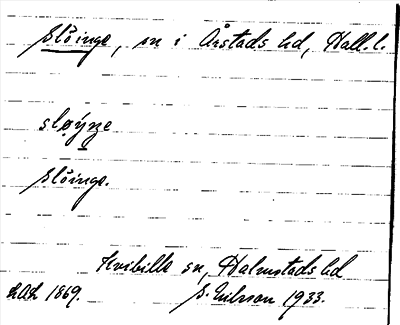 Slöinge, sn i Årstads hd, Hall. l.
sløýŋe
Slöinge.
Kvibille sn, Halmstads hd
LAL 1869. S. Nilsson 1933.